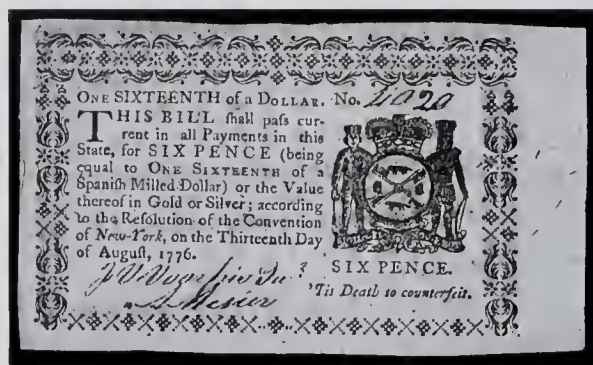 ONE SIXTEENTH of a DOLLAR. No. 4020
THIS BILL ſhall paſs cur-
rent in all Payments in this
State, for SIX PENCE (being
equal to ONE SIXTEENTH of a
Spaniſh Milled Dollar) or the Value
thereof in Gold or Silver; according
to the Reſolution of the Convention
of New-York, on the Thirteenth Day
of Auguſt, 1776.
SIX PENCE.
'Tis Death to counterfeit.